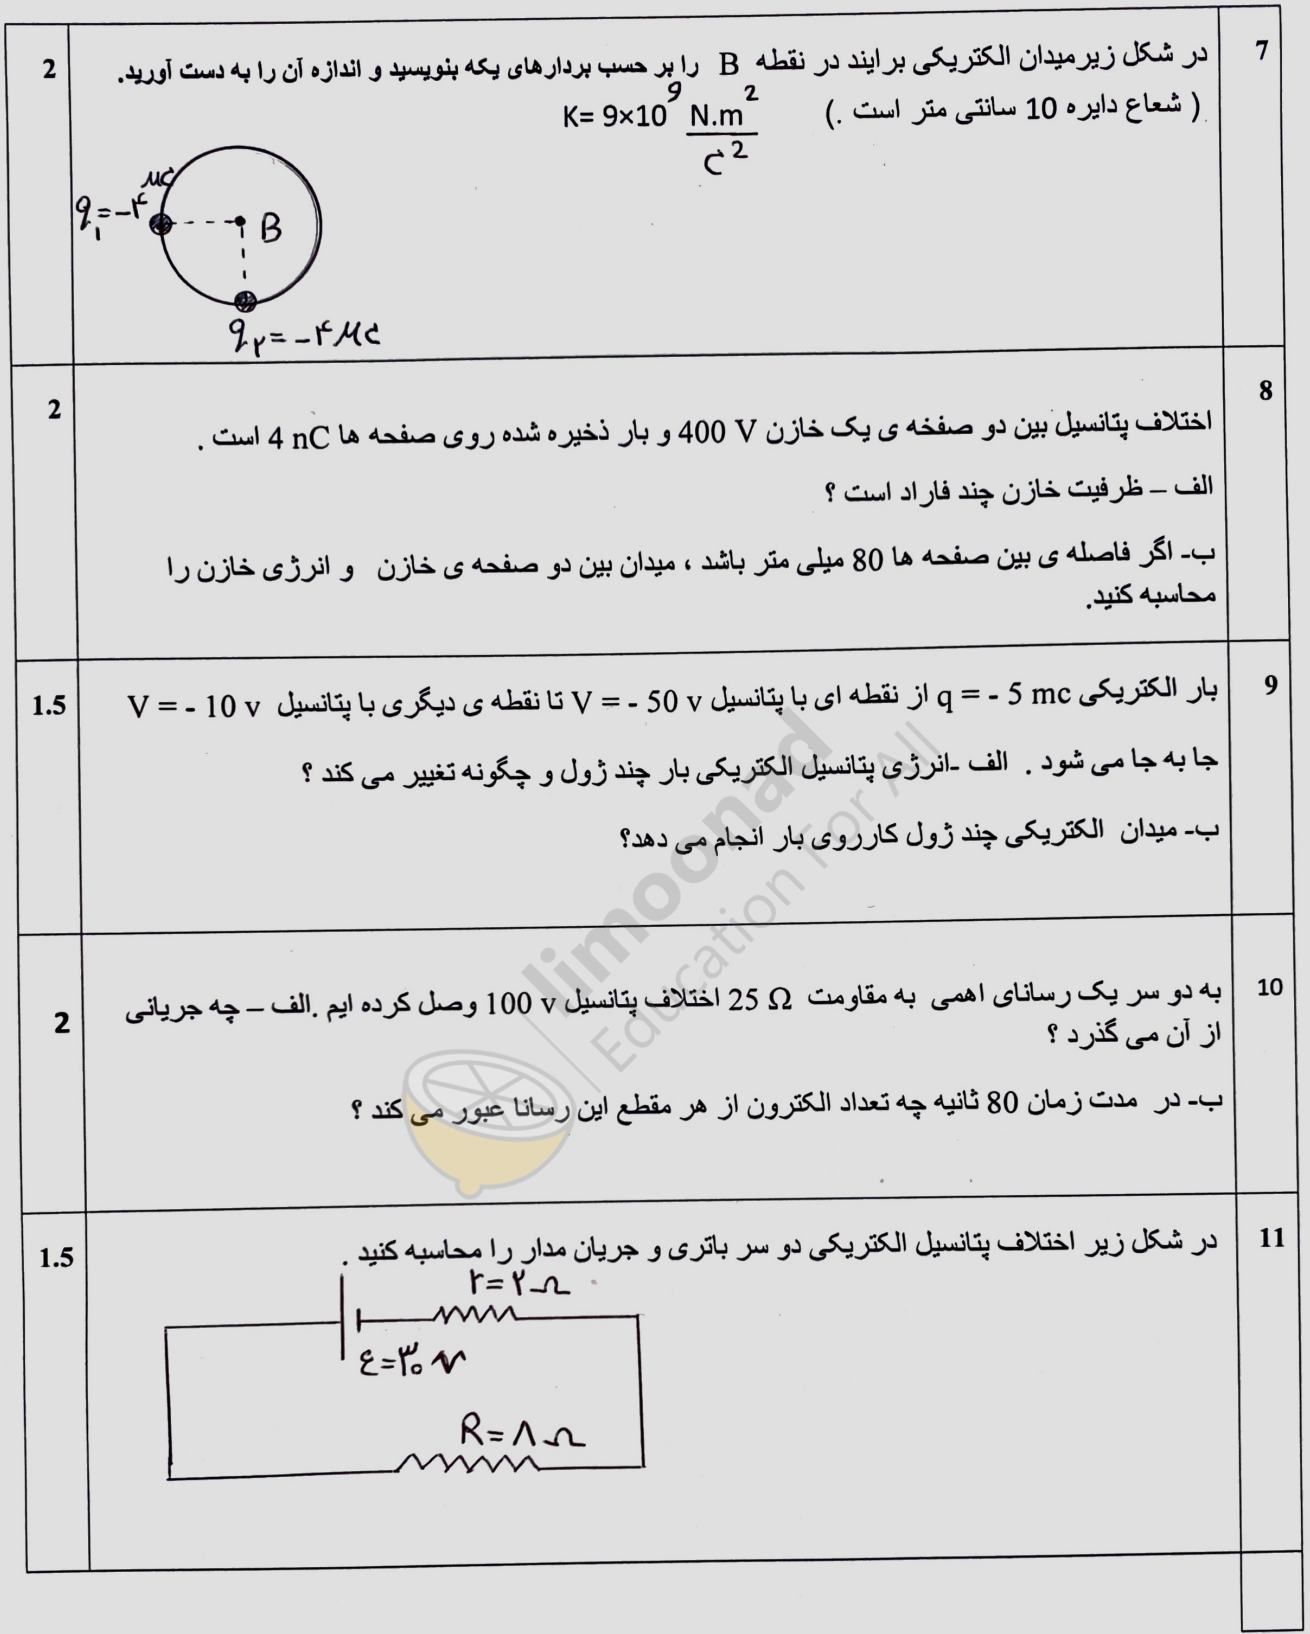 7
در شکل زیرمیدان الکتریکی برایند در نقطه B را بر حسب بردارهای یکه بنویسید و اندازه آن را به دست آورید.
2
( شعاع دایره 10 سانتی متر است .) K= 9×10⁹ N.m²/C²
q₁=-۴ μC
B
q₂=-۴ μC
8
2
اختلاف پتانسیل بین دو صفخه ی یک خازن 400 V و بار ذخیره شده روی صفحه ها 4 nC است .
الف – ظرفیت خازن چند فاراد است ؟
ب- اگر فاصله ی بین صفحه ها 80 میلی متر باشد ، میدان بین دو صفحه ی خازن و انرژی خازن را
محاسبه کنید.
9
1.5
بار الکتریکی q = - 5 mc از نقطه ای با پتانسیل V = - 50 v تا نقطه ی دیگری با پتانسیل V = - 10 v
جا به جا می شود . الف -انرژی پتانسیل الکتریکی بار چند ژول و چگونه تغییر می کند ؟
ب- میدان الکتریکی چند ژول کارروی بار انجام می دهد؟
limoonad
Education For All
10
2
به دو سر یک رسانای اهمی به مقاومت 25 Ω اختلاف پتانسیل 100 v وصل کرده ایم .الف – چه جریانی
از آن می گذرد ؟
ب- در مدت زمان 80 ثانیه چه تعداد الکترون از هر مقطع این رسانا عبور می کند ؟
11
1.5
در شکل زیر اختلاف پتانسیل الکتریکی دو سر باتری و جریان مدار را محاسبه کنید .
r=۲Ω
ε=۳۰ V
R=۸Ω